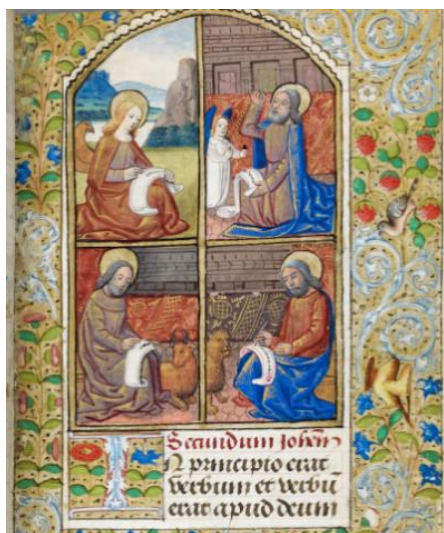 Secundum Johēm
In principio erat
verbum et verbū
erat apud deum